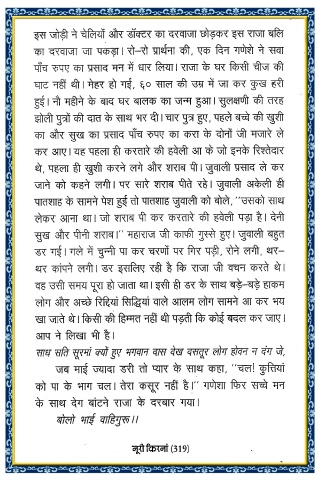 इस जोड़ी ने चेलियाँ और डॉक्टर का दरवाजा छोड़कर इस राजा बलि
का दरवाजा जा पकड़ा। रो-रो प्रार्थना की, एक दिन गणेशे ने सवा
पाँच रुपए का प्रसाद मन में धार लिया। राजा के घर किसी चीज की
घाट नहीं थी। मेहर हो गई, ६० साल की उम्र में जा कर कुख हरी
हुई। नौ महीने के बाद घर बालक का जन्म हुआ। सुलक्षणी की तरह
झोली पुत्रों की दात के साथ भर दी। चार पुत्र हुए, पहले बच्चे की खुशी
का और सुख का प्रसाद पाँच रुपए का करा के दोनों जी मजारे ले
कर आए। यह पहला ही करतारे की हवेली आ के जो इनके रिश्तेदार
थे, पहला ही खुशी करने लगे और शराब पी। जुवाली प्रसाद ले कर
जाने को कहने लगी। पर सारे शराब पीते रहे। जुवाली अकेली ही
पातशाह के सामने पेश हुई तो पातशाह जुवाली को बोले, ''उसको साथ
लेकर आना था। जो शराब पी कर करतारे की हवेली पड़ा है। देनी
सुख और पीनी शराब।'' महाराज जी काफी गुस्से हुए। जुवाली बहुत
डर गई। गले में चुन्नी पा कर चरणों पर गिर पड़ी, रोने लगी, थर-
थर कांपने लगी। डर इसलिए रही है कि राजा जी वचन करते थे।
वह उसी समय पूरा हो जाता था। इसी ही डर के साथ बड़े-बड़े हाकम
लोग और अच्छे रिद्दियां सिद्धियां वाले आलम लोग सामने आ कर भय
खा जाते थे। किसी की हिम्मत नहीं थी पड़ती कि कोई बदल कर जाए।
आप ने लिखा भी है।
साध सति सूरमां क्यों हुए भगवान वास देख दसतूर लोग होवन न दंग जे,
जब माई ज्यादा डरी तो प्यार के साथ कहा, ''चल! कुत्तियां
को पा के भाग चल। तेरा कसूर नहीं है।'' गणेशा फिर सच्चे मन
के साथ देग बांटने राजा के दरबार गया।
बोलो भाई वाहिगुरू।।
नूरी किरनां (319)